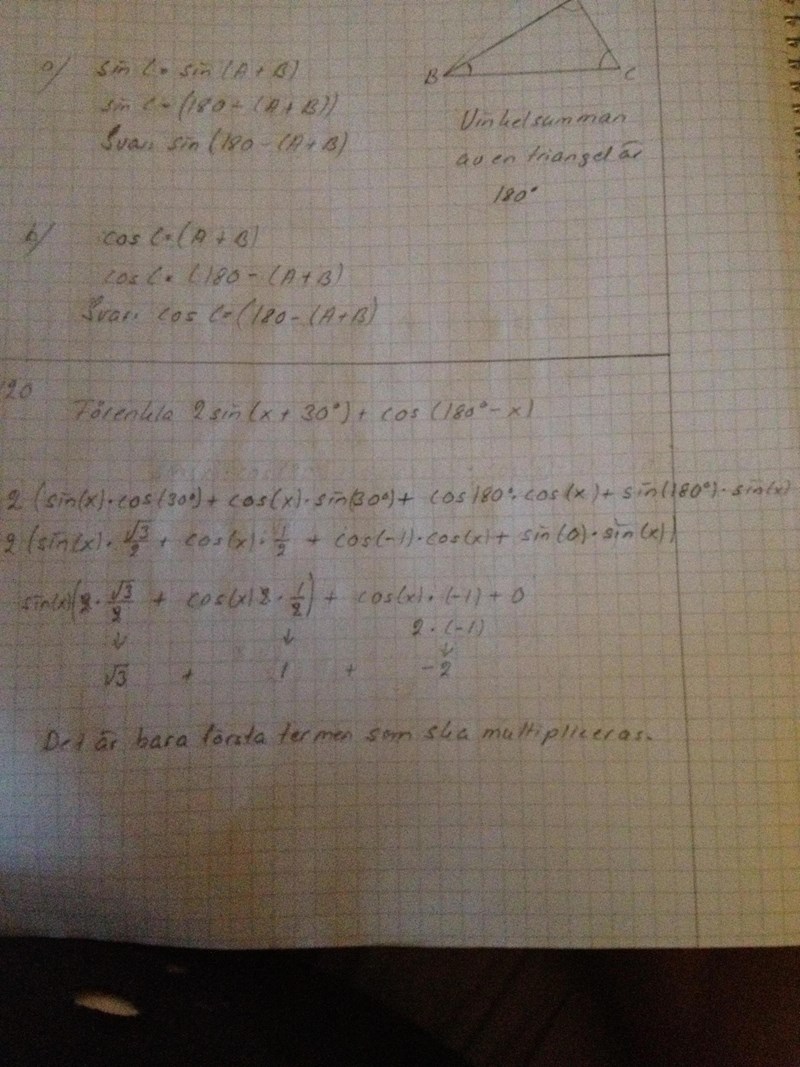 a) sin C = sin (A + B)
sin C = (180 - (A + B))
Svar: sin (180 - (A + B)
B C
Vinkelsumman
av en triangel är
180°
b) cos C = (A + B)
cos C = (180 - (A + B)
Svar: cos C = (180 - (A + B)
20
Förenkla 2 sin (x + 30°) + cos (180° - x)
2 (sin(x) · cos(30°) + cos(x) · sin(30°) + cos 180° · cos(x) + sin(180°) · sin(x)
2 (sin(x) · √3/2 + cos(x) · 1/2 + cos(-1) · cos(x) + sin(0) · sin(x))
sin(x)(2 · √3/2 + cos(x) 2 · 1/2) + cos(x) · (-1) + 0
2 · (-1)
↓ ↓ ↓
√3 + 1 + -2
Det är bara första termen som ska multipliceras.